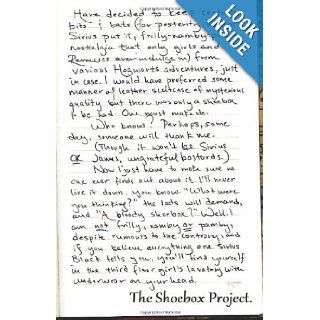 LOOK
INSIDE!
Have decided to keep
bits & bats (for posterity
Sirius put it, frilly-namby-p
nostalgia that only girls and
ever indulge in) from
various Hogwarts adventures, just
in case. I would have preferred some
manner of leather suitcase of mysterious
quality, but there was only a shoebox
to be had. One must make do.
Who knows? Perhaps, some
day, someone will thank me.
(Though it won't be Sirius
OR James, ungrateful bastards.)
Now I just have to make sure no
one ever finds out about it. I'll never
live it down, you know. "What were
you thinking?" the lads will demand,
and "A bloody shoebox?" Well. I
am not frilly, namby or pamby,
despite rumors to the contrary, and
if you believe everything one Sirius
Black tells you, you'll find yourself
in the third floor girl's lavatory with
underwear on your head.
The Shoebox Project.